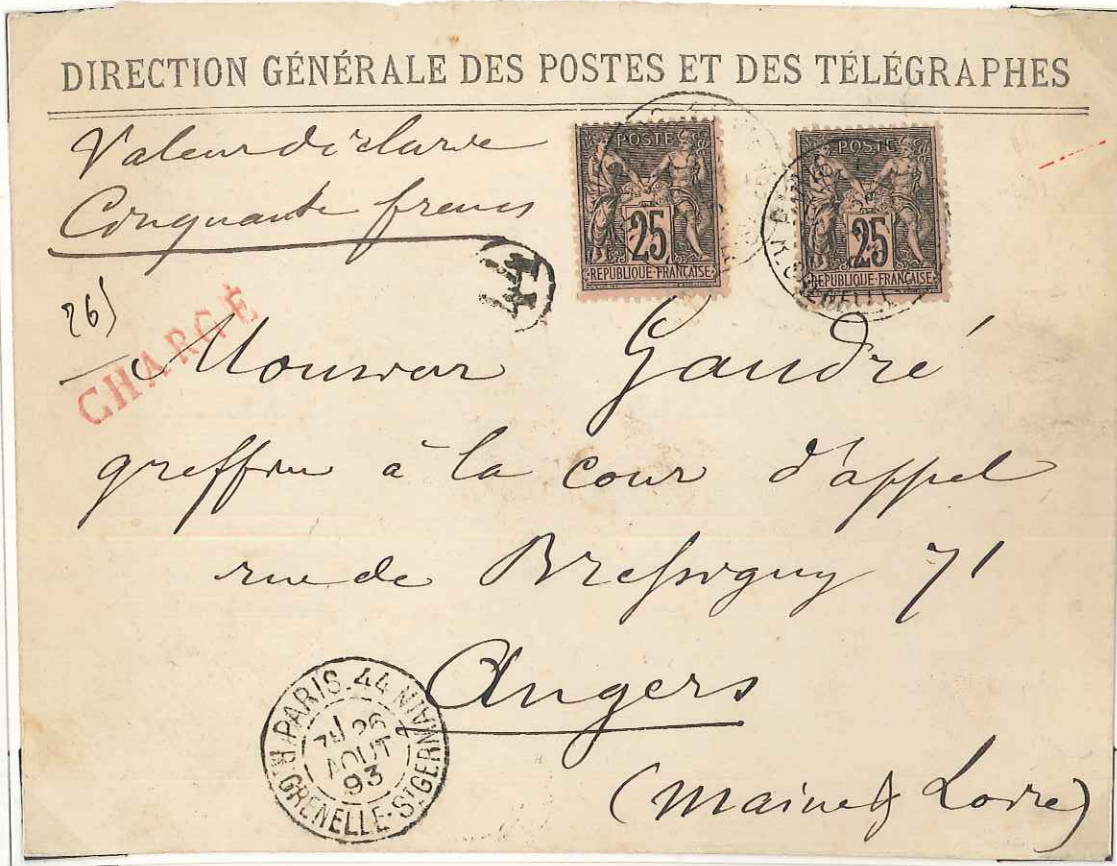 DIRECTION GÉNÉRALE DES POSTES ET DES TÉLÉGRAPHES
Valeur déclarée
Cinquante francs
POSTE
25
REPUBLIQUE FRANÇAISE
POSTE
25
REPUBLIQUE FRANÇAISE
GRENELLE
265
CHARGÉ
Monsieur Gaudré
greffier à la cour d'appel
rue de Bressigny 71
Angers
(Maine & Loire)
PARIS.44
26
AOUT
93
R. GRENELLE-ST GERMAIN